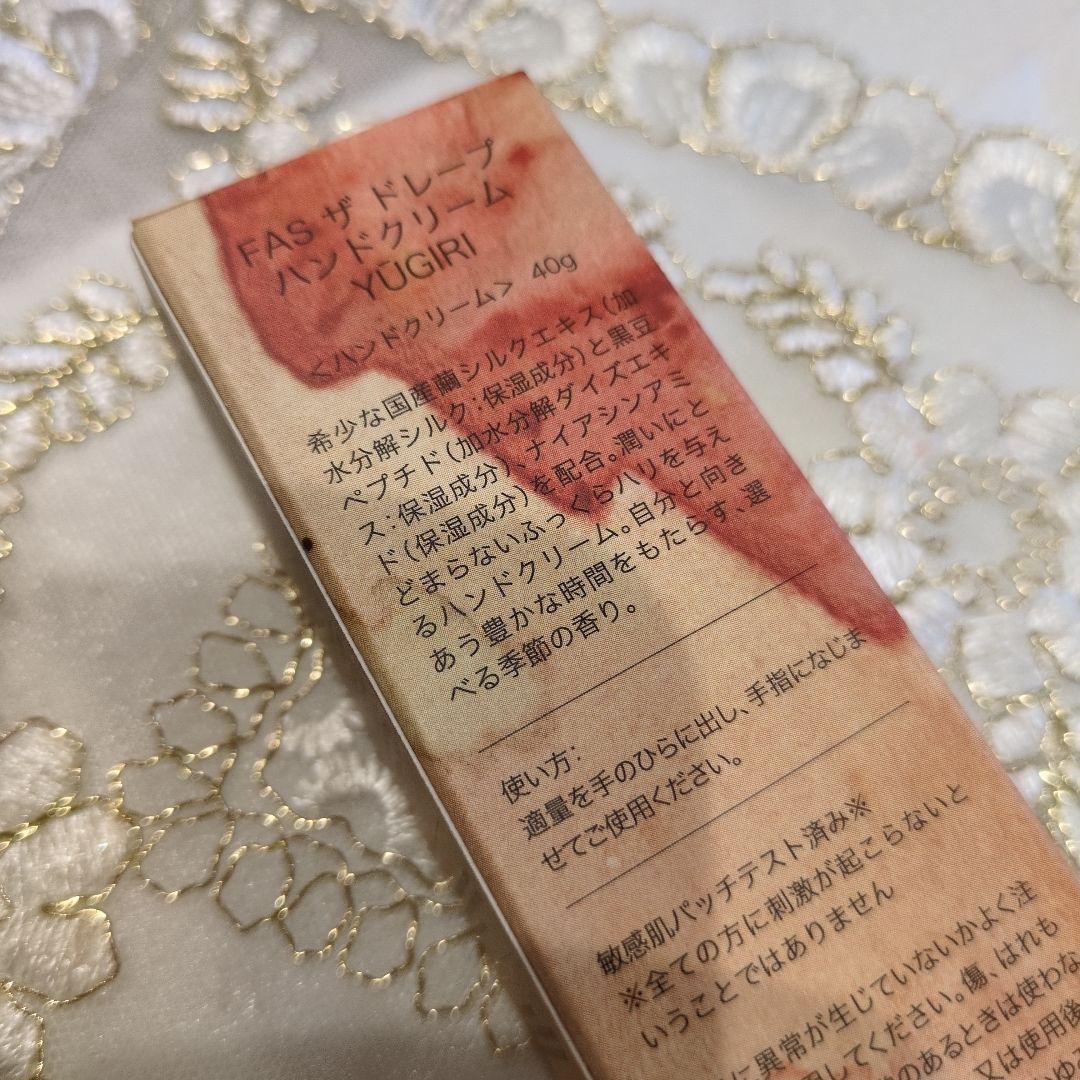 FAS ザ ドレープ
ハンドクリーム
YŪGIRI
<ハンドクリーム> 40g
希少な国産繭シルクエキス(加
水分解シルク:保湿成分)と黒豆
ペプチド(加水分解ダイズエキ
ス:保湿成分)、ナイアシンアミ
ド(保湿成分)を配合。潤いにと
どまらないふっくらハリを与え
るハンドクリーム。自分と向き
あう豊かな時間をもたらす、選
べる季節の香り。
使い方:
適量を手のひらに出し、手指になじま
せてご使用ください。
敏感肌パッチテスト済み※
※全ての方に刺激が起こらないと
いうことではありません
に異常が生じていないかよく注
してください。傷、はれも
のあるときは使わな
又は使用後